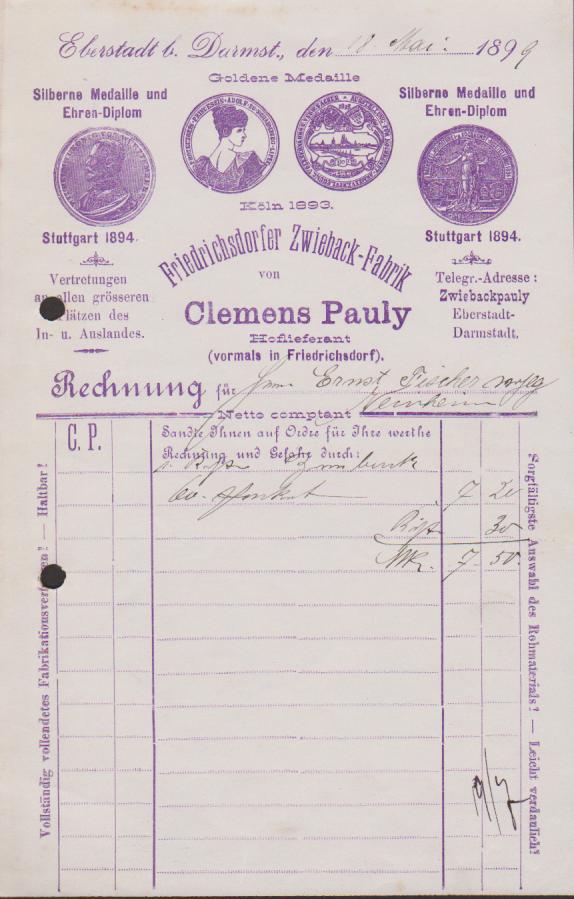 Eberstadt b. Darmst., den 18. Mai 1899
Goldene Medaille
Silberne Medaille und
Ehren-Diplom
Silberne Medaille und
Ehren-Diplom
Köln 1893.
Stuttgart 1894.
Stuttgart 1894.
Friedrichsdorfer Zwieback-Fabrik
von
Clemens Pauly
Hoflieferant
(vormals in Friedrichsdorf).
Vertretungen
an allen grösseren
Plätzen des
In- u. Auslandes.
Telegr.-Adresse:
Zwiebackpauly
Eberstadt-
Darmstadt.
Rechnung für Herrn Ernst Fischer
Weinheim
Netto comptant
C. P.
Sandte Ihnen auf Ordre für Ihre werthe
Rechnung und Gefahr durch:
1 Kiste Zwieback
60 Packet 7 20
Kiste 30
Mk. 7. 50.
Vollständig vollendetes Fabrikationsverfahren! — Haltbar!
Sorgfältigste Auswahl des Rohmaterials! — Leicht verdaulich!